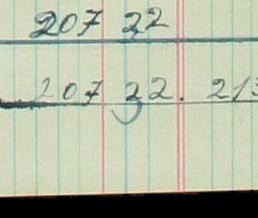 207 22
207 22. 213